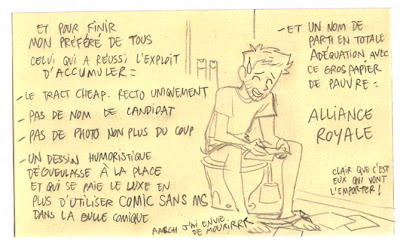 ET POUR FINIR
MON PRÉFÉRÉ DE TOUS
CELUI QUI A RÉUSSI L'EXPLOIT
D'ACCUMULER =
- LE TRACT CHEAP. RECTO UNIQUEMENT
- PAS DE NOM DE CANDIDAT
- PAS DE PHOTO NON PLUS DU COUP
- UN DESSIN HUMORISTIQUE
DÉGUEULASSE À LA PLACE
ET QUI SE PAIE LE LUXE EN
PLUS D'UTILISER COMIC SANS MS
DANS LA BULLE COMIQUE
AARGH J'AI ENVIE
DE MOURIRR
- ET UN NOM DE
PARTI EN TOTALE
ADÉQUATION AVEC
CE GROS PAPIER
DE PAUVRE =
ALLIANCE
ROYALE
CLAIR QUE C'EST
EUX QUI VONT
L'EMPORTER !